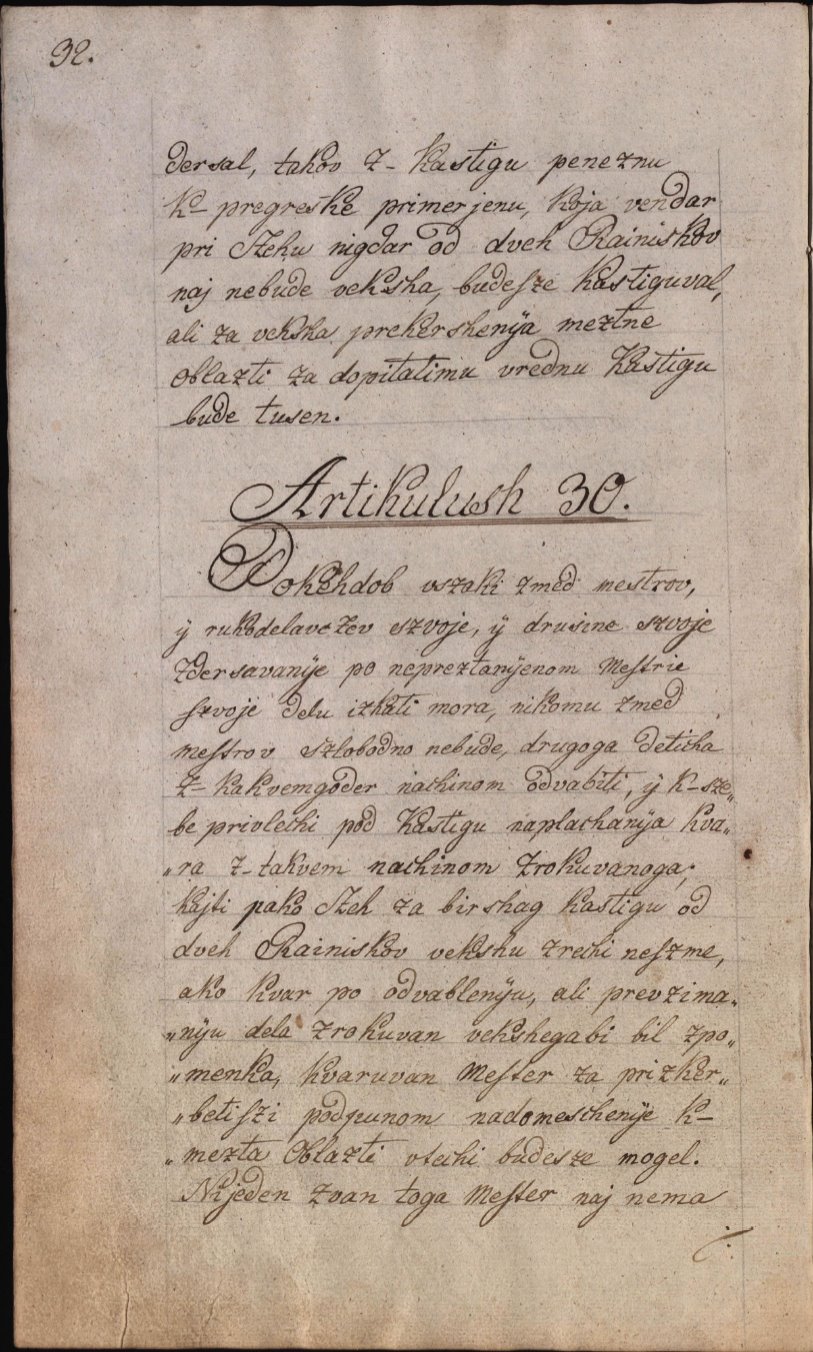 32.
dersal, takov z- kastigu peneznu
k- pregreske primerjenu, koja vendar
pri Czehu nigdar od dveh Rainiskov
naj nebude veksha, budesze kastiguval,
ali za veksha prekershenya meztne
oblazti za dopitatimu vrednu kastigu
bude tusen.
Artikulush 30.
Dokehdob vszaki zmed mestrov,
ÿ rukodelavczev szvoje, ÿ drusine szvoje
zdersavanÿe po nepreztanÿenom Mestrie
szvoje delu izkati mora, nikomu zmed
mestrov szlobodno nebude, drugoga deticha
z- kakvemgoder nachinom odvabiti, ÿ k- sze„
be privlechi pod kastigu naplachanÿa kva„
„ra z- takvem nachinom zrokuvanoga;
kajti pako Czeh za birshag kastigu od
dveh Rainiskov vekshu zrechi neszme,
ako kvar po odvablenÿu, ali prevzima„
„nÿu dela zrokuvan vekshegabi bil zpo„
„menka, kvaruvan Mester za prizker„
„betiszi podpunom nadomeschenÿe k-
„mezta Oblazti vtechi budesze mogel.
Nijeden zvan toga Mester naj nema
./.